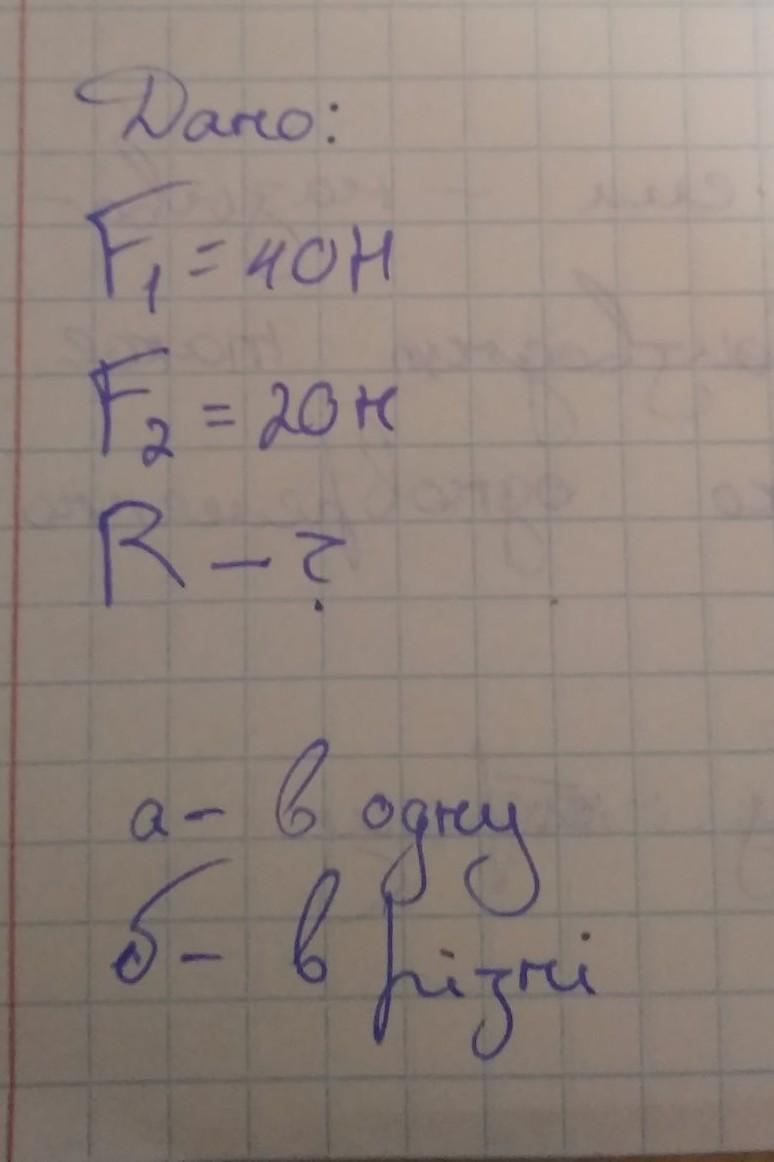 Дано:
F₁ = 40Н
F₂ = 20н
R – ?
а – в одну
б – в різні